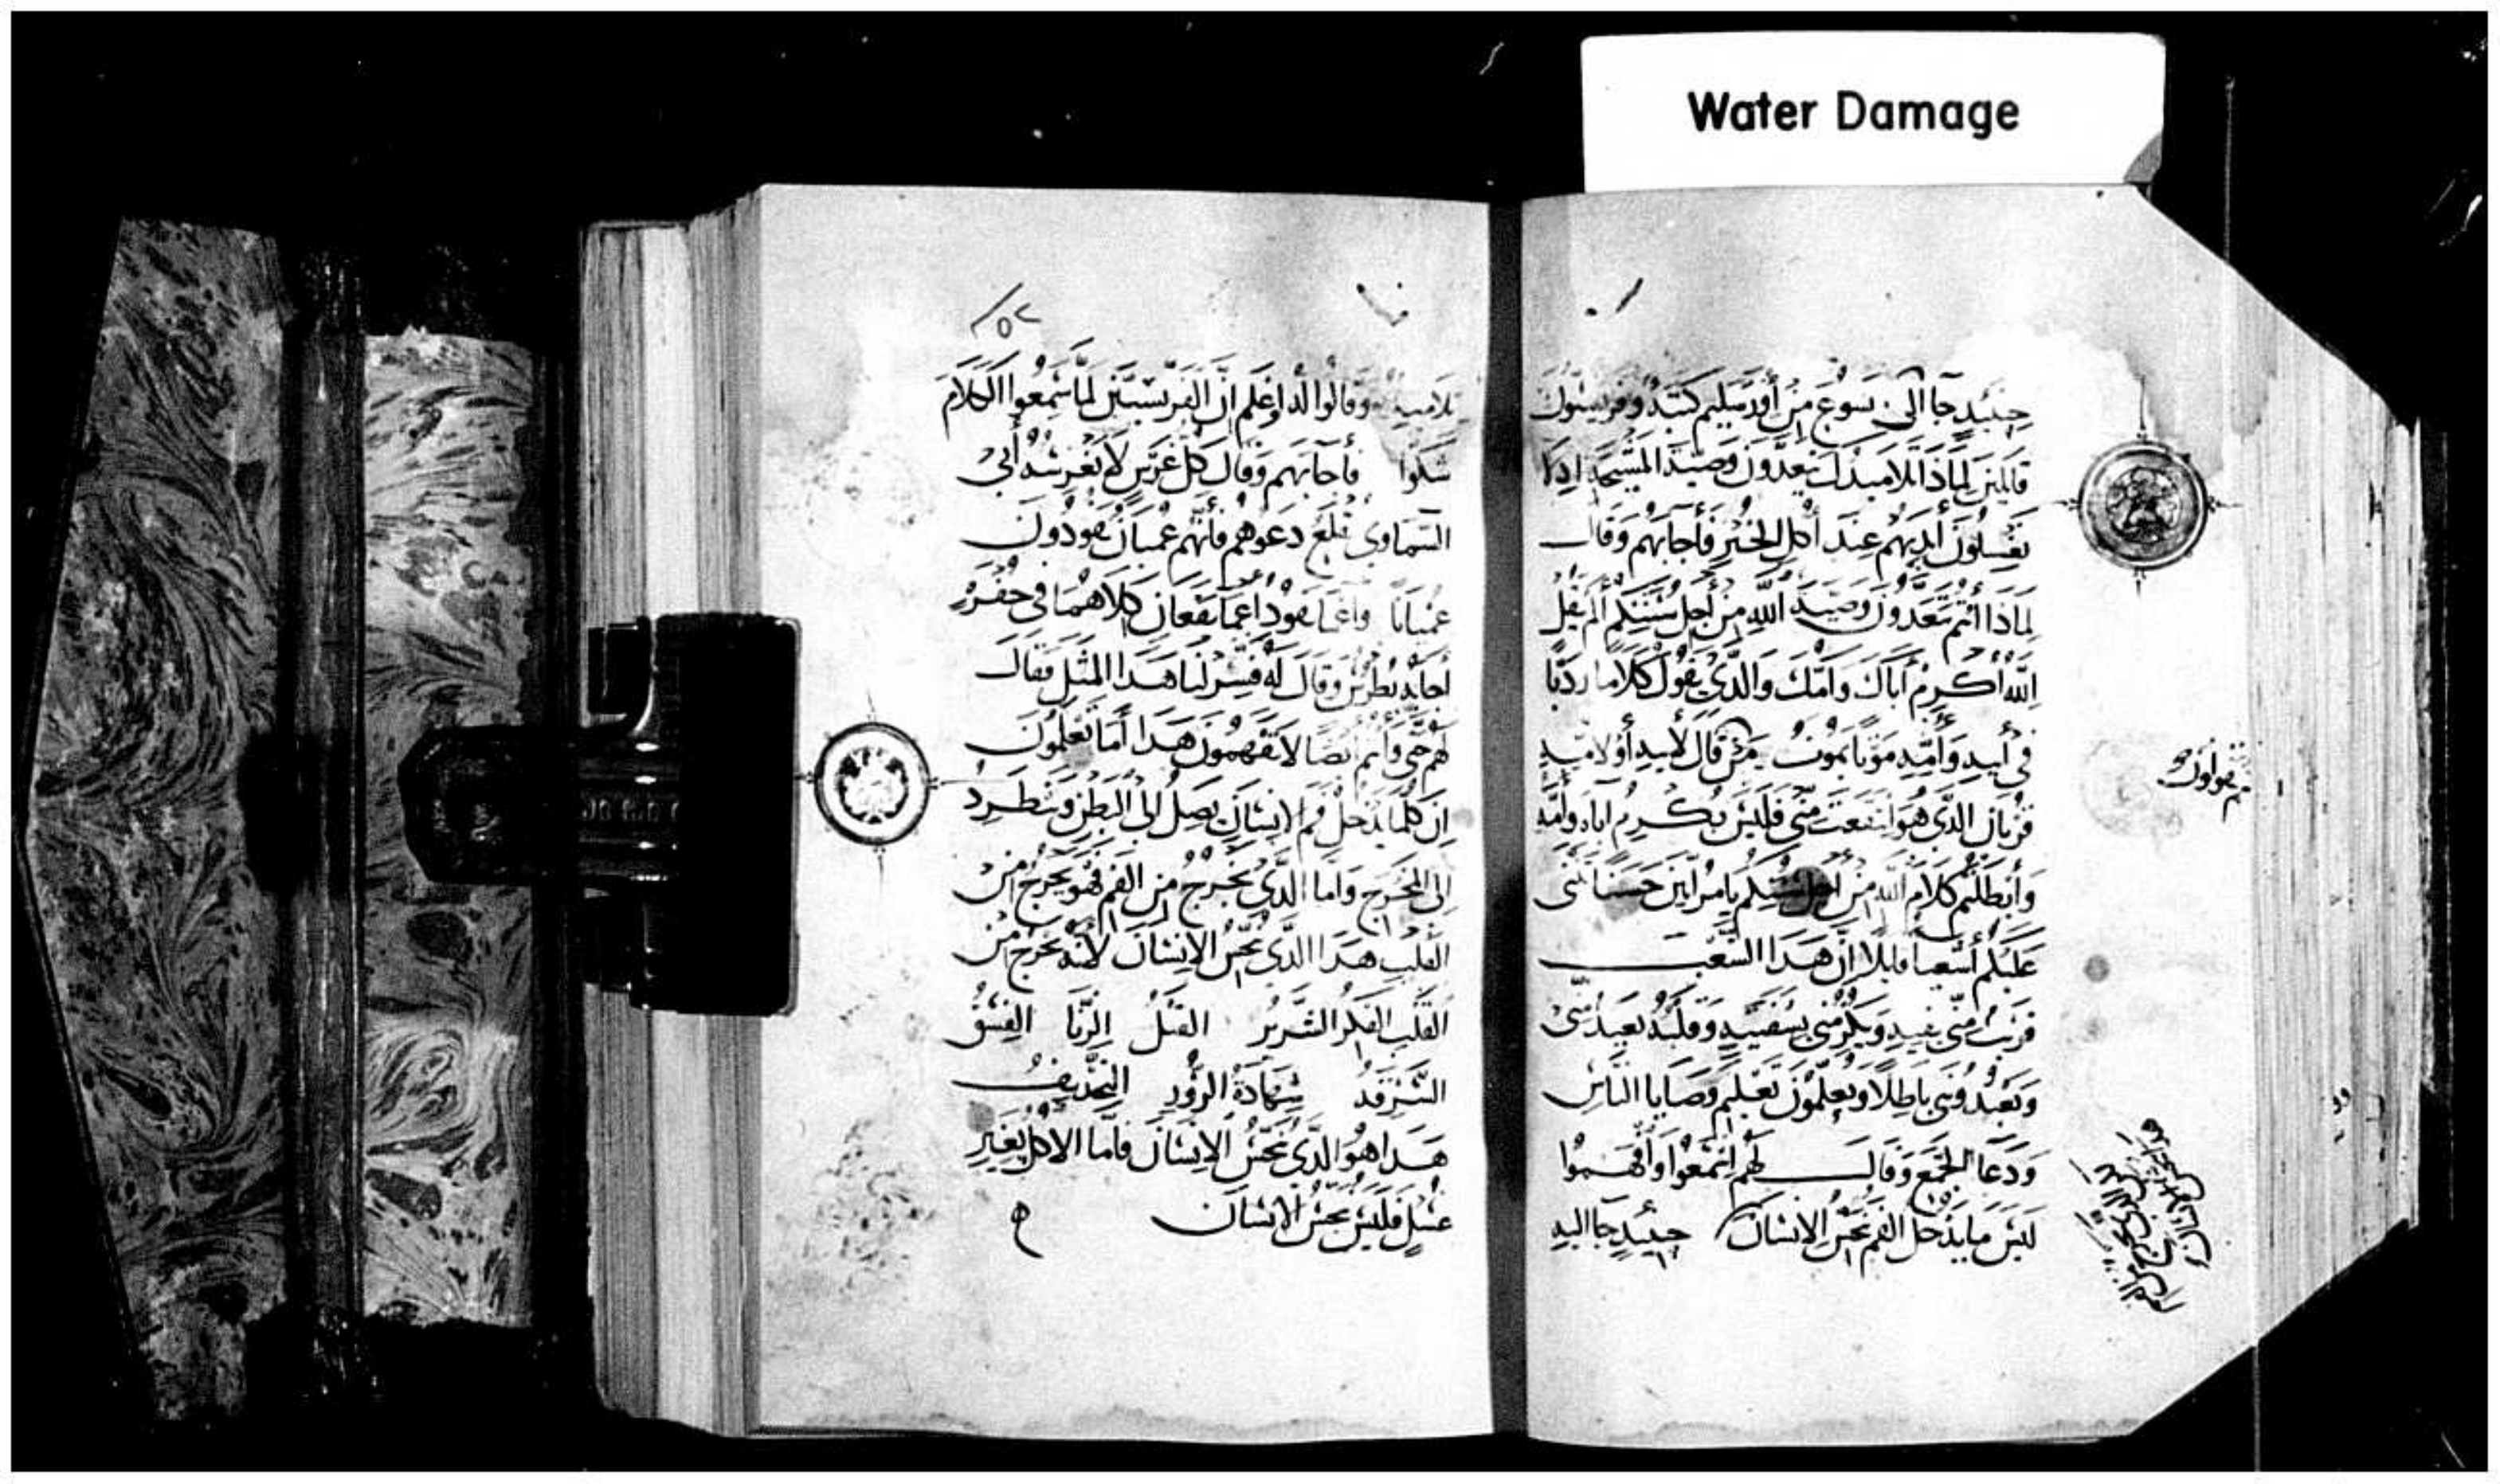 Water Damage
حينئذ جا الى يسوع من أورشليم كتبه وفريسيون
قايلين لماذا تلاميذك يتعدون وصية المشيخه اذا
يغسلون أيديهم عند أكل الخبز فأجابهم وقال
لماذا أنتم تتعدون وصية الله من أجل سنتكم ألم يقل
الله أكرم أباك وامك والذي يقول كلاما رديا
في أبيه وأمه موتا يموت من قال لأبيه أو لامه
قربان الذي هو انتفعت مني فليس يكرم أباه وأمه
وأبطلتم كلام الله من أجل سنتكم يا مرايين حسنا تنبى
عليكم أشعيا قايلا ان هذا الشعب
قريب مني بفيه ويكرمني بشفتيه وقلبه بعيد مني
ويعبدونني باطلا ويعلمون تعليم وصايا الناس
ودعا الجمع وقال لهم اسمعوا وافهموا
ليس ما يدخل الفم ينجس الانسان حينئذ جا اليه
تلاميذه وقالوا له اعلم ان الفريسيين لما سمعوا الكلام
شكوا فأجابهم وقال كل غرس لا يغرسه أبي
السماوي يقلع دعوهم فأنهم عميان يقودون
عميانا واعما يقود اعما يقعان كلاهما في حفره
أجابه بطرس وقال له فسر لنا هذا المثل فقال
لهم حتى وأنتم أيضا لا تفهمون هذا أما تعلمون
ان كلما يدخل فم الانسان يصل الى البطن وينطرد
الى المخرج واما الذي يخرج من الفم فهو يخرج من
القلب هذا الذي ينجس الانسان لأنه يخرج من
القلب الفكر الشرير القتل الزنا الفسق
السرقه شهادة الزور التجديف
هذا هو الذي ينجس الانسان فأما الاكل بغير
غسل فليس ينجس الانسان